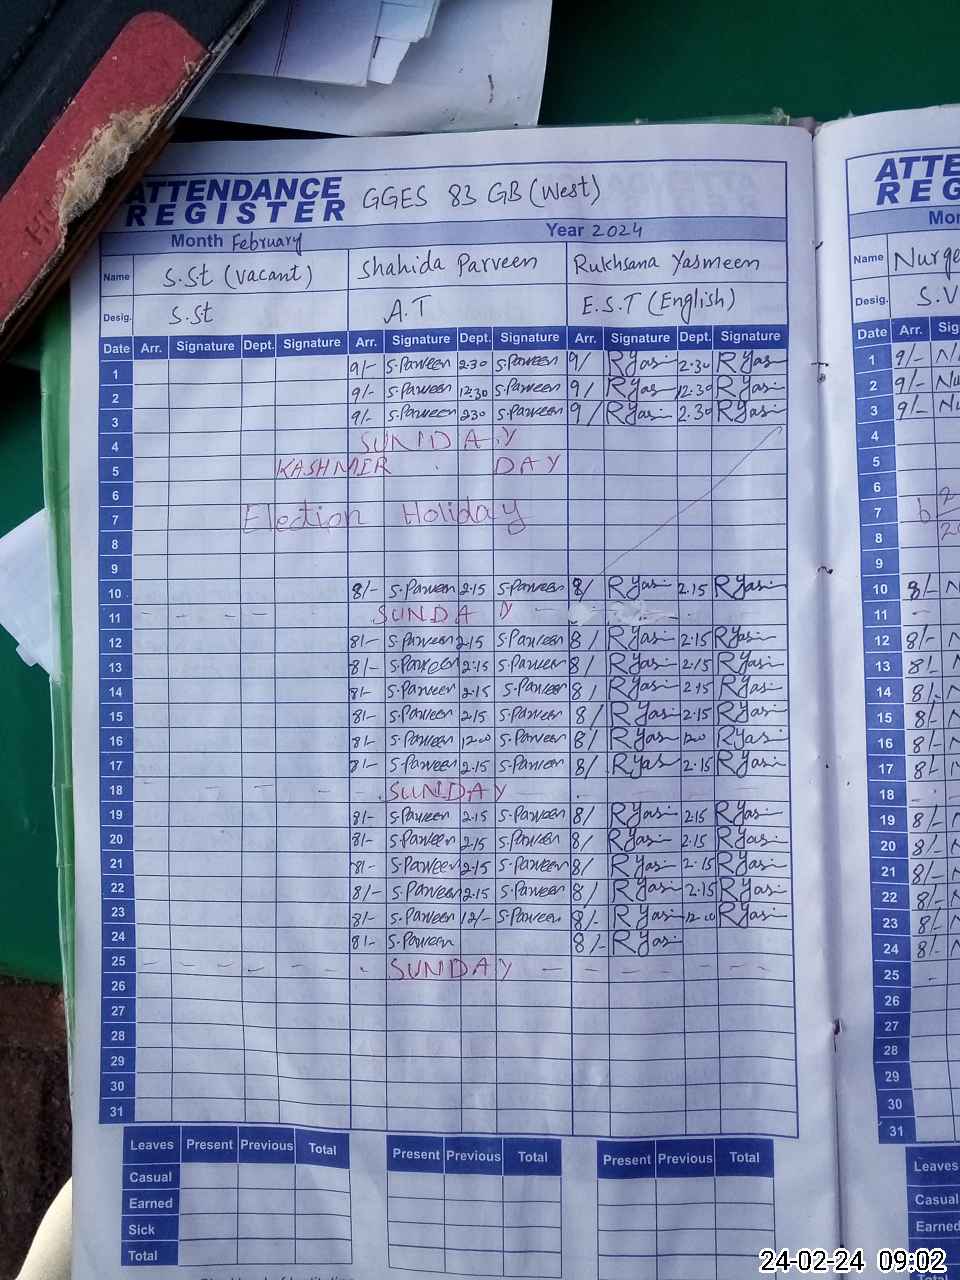 ATTENDANCE REGISTER GGES 83 GB (West)
Month February Year 2024
Name S.St (Vacant) Shahida Parveen Rukhsana Yasmeen
Desig. S.St A.T E.S.T (English)
Date Arr. Signature Dept. Signature Arr. Signature Dept. Signature Arr. Signature Dept. Signature
1 9/- S.Parveen 2.30 S.Parveen 9/ R Yasi 2.30 R Yasi
2 9/- S.Parveen 12.30 S.Parveen 9/ R Yas 12.30 R Yasi
3 9/- S.Parveen 230 S.Parveen 9/ R Yasi 2.30 R Yasi
4 SUNDAY
5 KASHMER DAY
6
7 Election Holiday
8
9
10 8/- S.Parveen 2.15 S.Parveen 8/ R Yasi 2.15 R Yasi
11 SUNDAY
12 8/- S.Parveen 2.15 S.Parveen 8/ R Yasi 2.15 R Yasi
13 8/- S.Parveen 2.15 S.Parveen 8/ R Yasi 2.15 R Yasi
14 8/- S.Parveen 2.15 S.Parveen 8/ R Yasi 2.15 R Yasi
15 8/- S.Parveen 2.15 S.Parveen 8/ R Yasi 2.15 R Yasi
16 8/- S.Parveen 12.00 S.Parveen 8/ R Yas R Yasi
17 8/- S.Parveen 2.15 S.Parveen 8/ R Yas 2.15 R Yasi
18 SUNDAY
19 8/- S.Parveen 2.15 S.Parveen 8/ R Yasi 2.15 R Yasi
20 8/- S.Parveen 2.15 S.Parveen 8/ R Yasi 2.15 R Yasi
21 8/- S.Parveen 2.15 S.Parveen 8/ R Yasi 2.15 R Yasi
22 8/- S.Parveen 2.15 S.Parveen 8/ R Yasi 2.15 R Yasi
23 8/- S.Parveen 12/- S.Parveen 8/- R Yasi 12.00 R Yasi
24 8/- S.Parveen 8/- R Yasi
25 SUNDAY
26
27
28
29
30
31
Leaves Present Previous Total Present Previous Total Present Previous Total
Casual
Earned
Sick
Total
Name
Desig. S.V
Date Arr.
1 9/-
2 9/-
3 9/-
4
5
6
7
8
9
10 8/-
11
12 8/-
13 8/-
14 8/-
15 8/-
16 8/-
17 8/-
18
19 8/-
20 8/-
21 8/-
22 8/-
23 8/-
24 8/-
25
26
27
28
29
30
31
Leaves
Casual
Earned
24-02-24 09:02